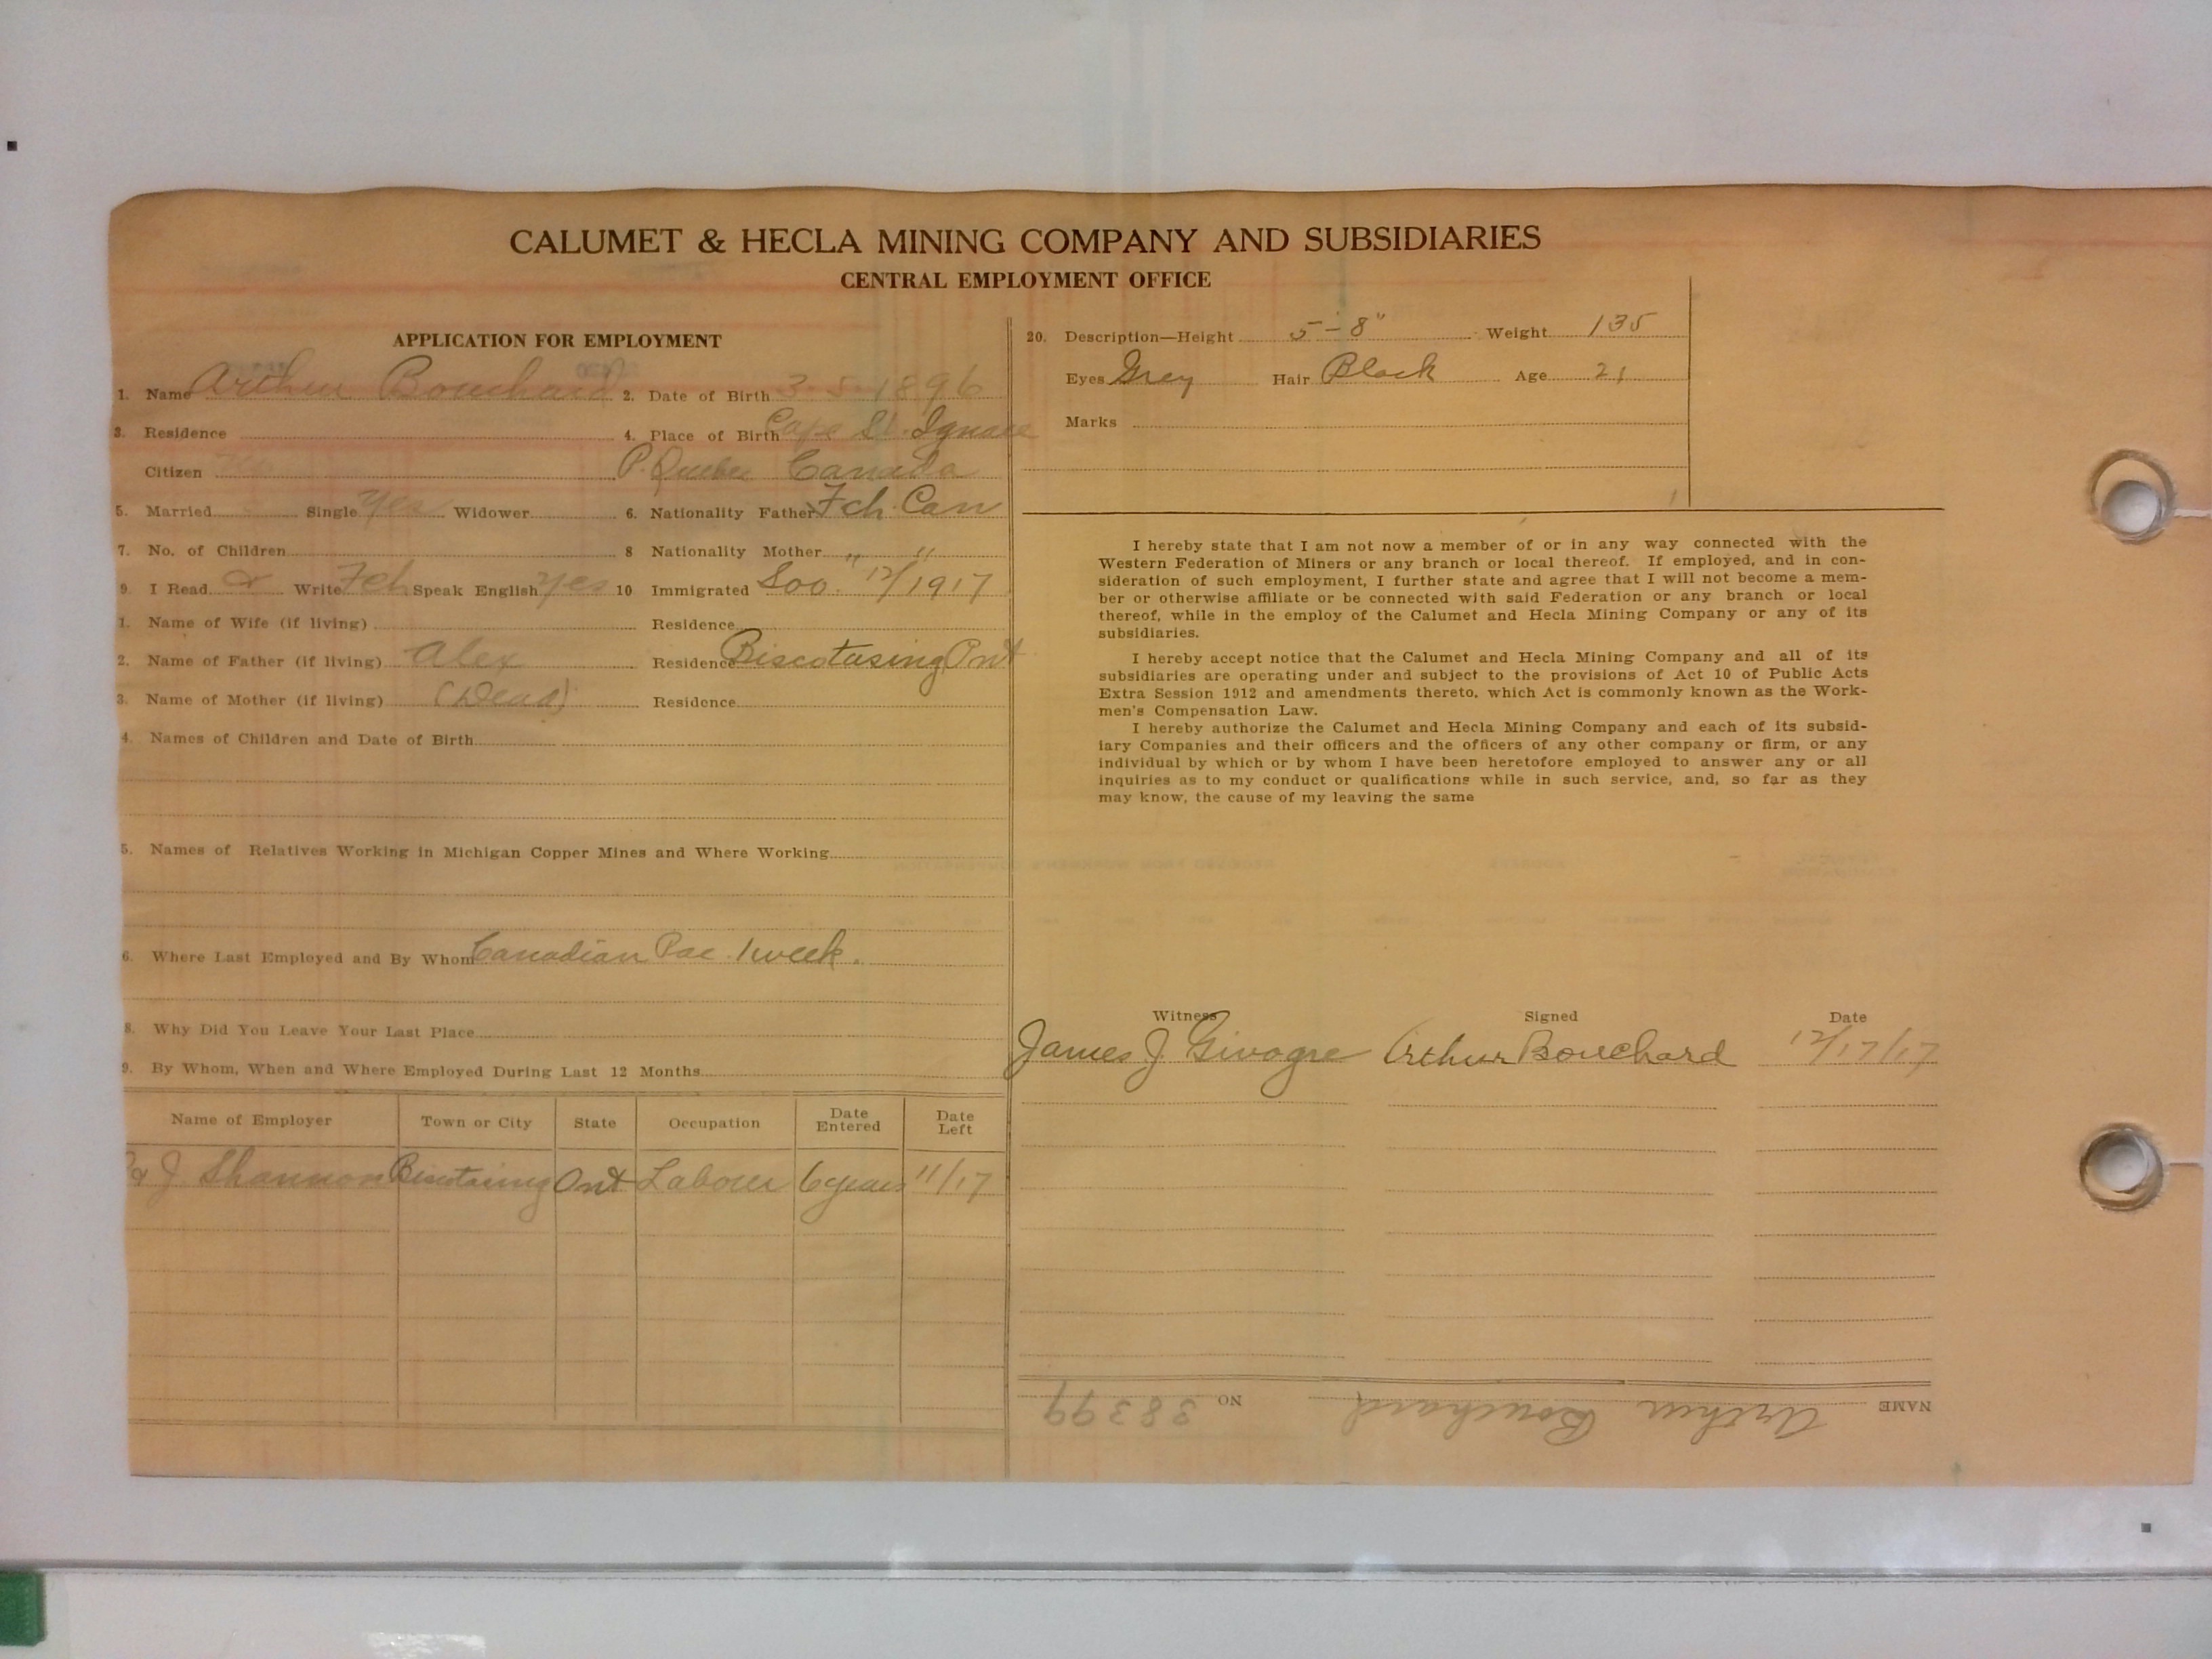 CALUMET & HECLA MINING COMPANY AND SUBSIDIARIES
CENTRAL EMPLOYMENT OFFICE
APPLICATION FOR EMPLOYMENT
1. Name Arthur Bouchard 2. Date of Birth 3-5-1896
3. Residence 4. Place of Birth Cape St. Ignace
Citizen P. Quebec Canada
5. Married Single Yes Widower 6. Nationality Father Fch. Can
7. No. of Children 8 Nationality Mother " "
9. I Read & Write Fch Speak English yes 10 Immigrated Soo. 12/1917
1. Name of Wife (if living) Residence
2. Name of Father (if living) Alex Residence Biscotasing Ont
3. Name of Mother (if living) (Dead) Residence
4. Names of Children and Date of Birth
5. Names of Relatives Working in Michigan Copper Mines and Where Working
6. Where Last Employed and By Whom Canadian Pac. 1 week.
8. Why Did You Leave Your Last Place
9. By Whom, When and Where Employed During Last 12 Months
Name of Employer Town or City State Occupation Date Entered Date Left
& J. Shannon Biscotasing Ont Laborer 6 years 11/17
20. Description—Height 5'-8" Weight 135
Eyes Grey Hair Black Age 21
Marks
I hereby state that I am not now a member of or in any way connected with the
Western Federation of Miners or any branch or local thereof. If employed, and in con-
sideration of such employment, I further state and agree that I will not become a mem-
ber or otherwise affiliate or be connected with said Federation or any branch or local
thereof, while in the employ of the Calumet and Hecla Mining Company or any of its
subsidiaries.
I hereby accept notice that the Calumet and Hecla Mining Company and all of its
subsidiaries are operating under and subject to the provisions of Act 10 of Public Acts
Extra Session 1912 and amendments thereto, which Act is commonly known as the Work-
men's Compensation Law.
I hereby authorize the Calumet and Hecla Mining Company and each of its subsid-
iary Companies and their officers and the officers of any other company or firm, or any
individual by which or by whom I have been heretofore employed to answer any or all
inquiries as to my conduct or qualifications while in such service, and, so far as they
may know, the cause of my leaving the same
Witness Signed Date
James J. Givogre Arthur Bouchard 12/17/17
NAME Arthur Bouchard NO 38399